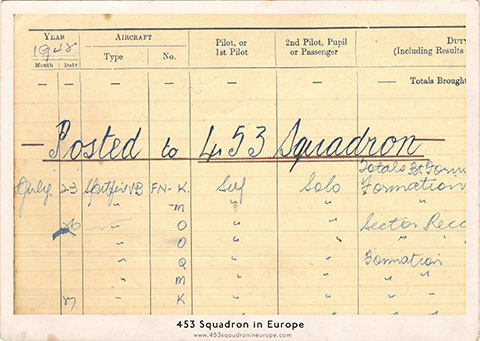 YEAR AIRCRAFT Pilot, or 1st Pilot 2nd Pilot, Pupil or Passenger DUTY (Including Results
1943
Month Date Type No.
— — — — — — — Totals Brought
— Posted to 453 Squadron —
Totals
July 23 Spitfire VB FN- K. Self Solo Formation
" -M " " " "
" O " " Sector Recc
" O " "
" Q " " Formation
" M " " " "
" K " " "
453 Squadron in Europe
www.453squadronineurope.com